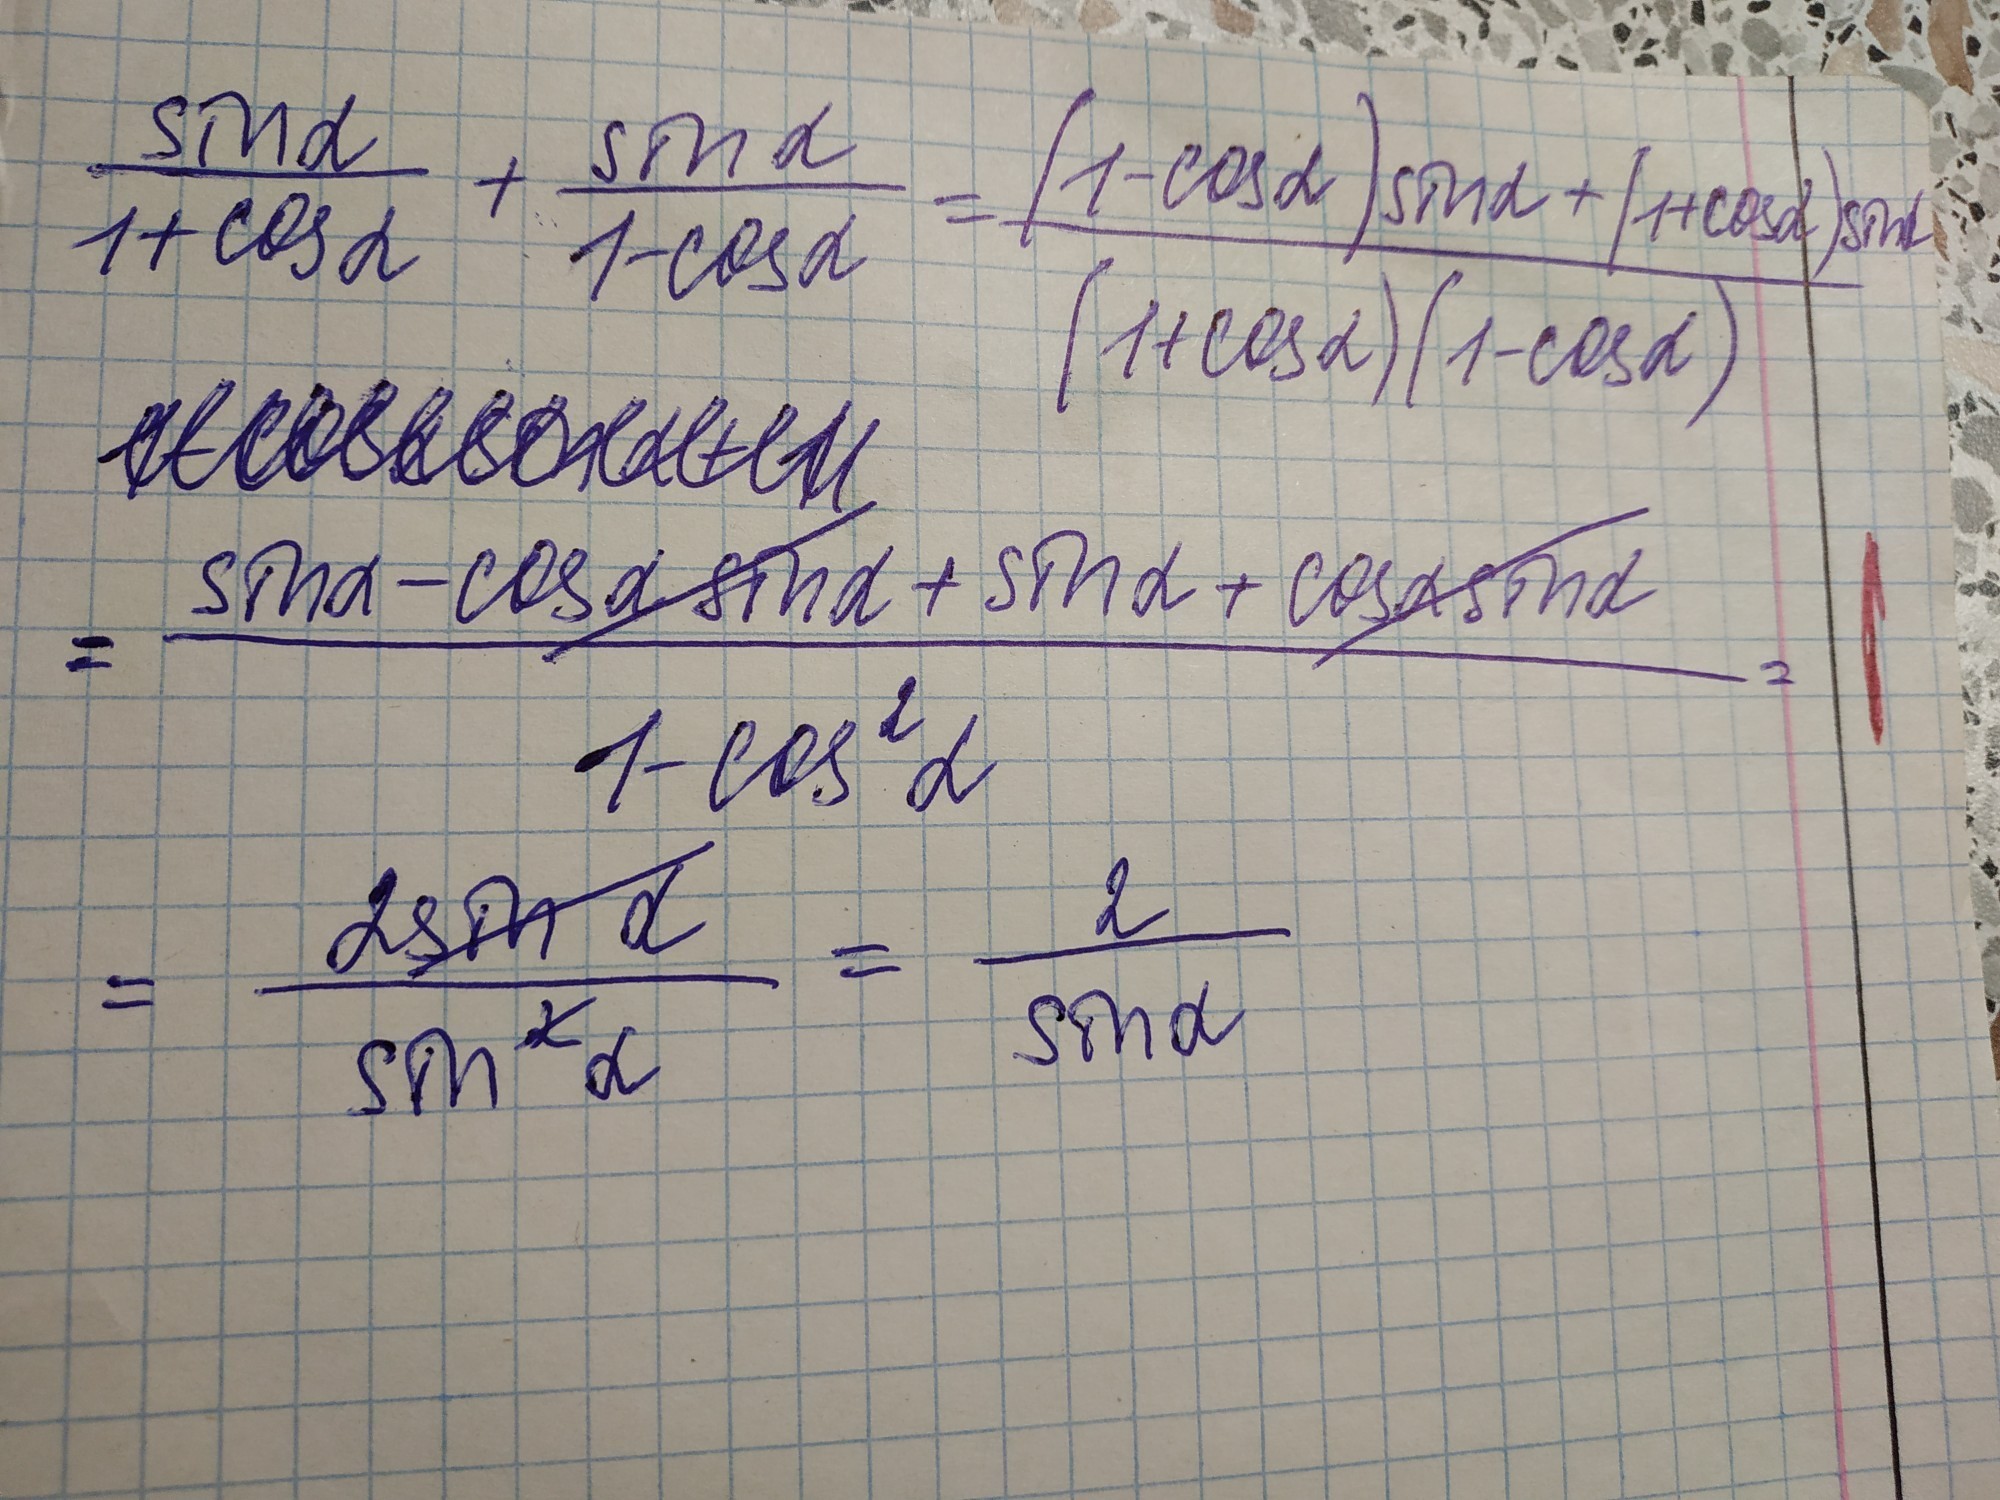 sinα/(1+cosα) + sinα/(1-cosα) = ((1-cosα)sinα+(1+cosα)sinα)/((1+cosα)(1-cosα))
= (sinα-cosα sinα+sinα+cosα sinα)/(1-cos²α) =
= 2sinα/sin²α = 2/sinα